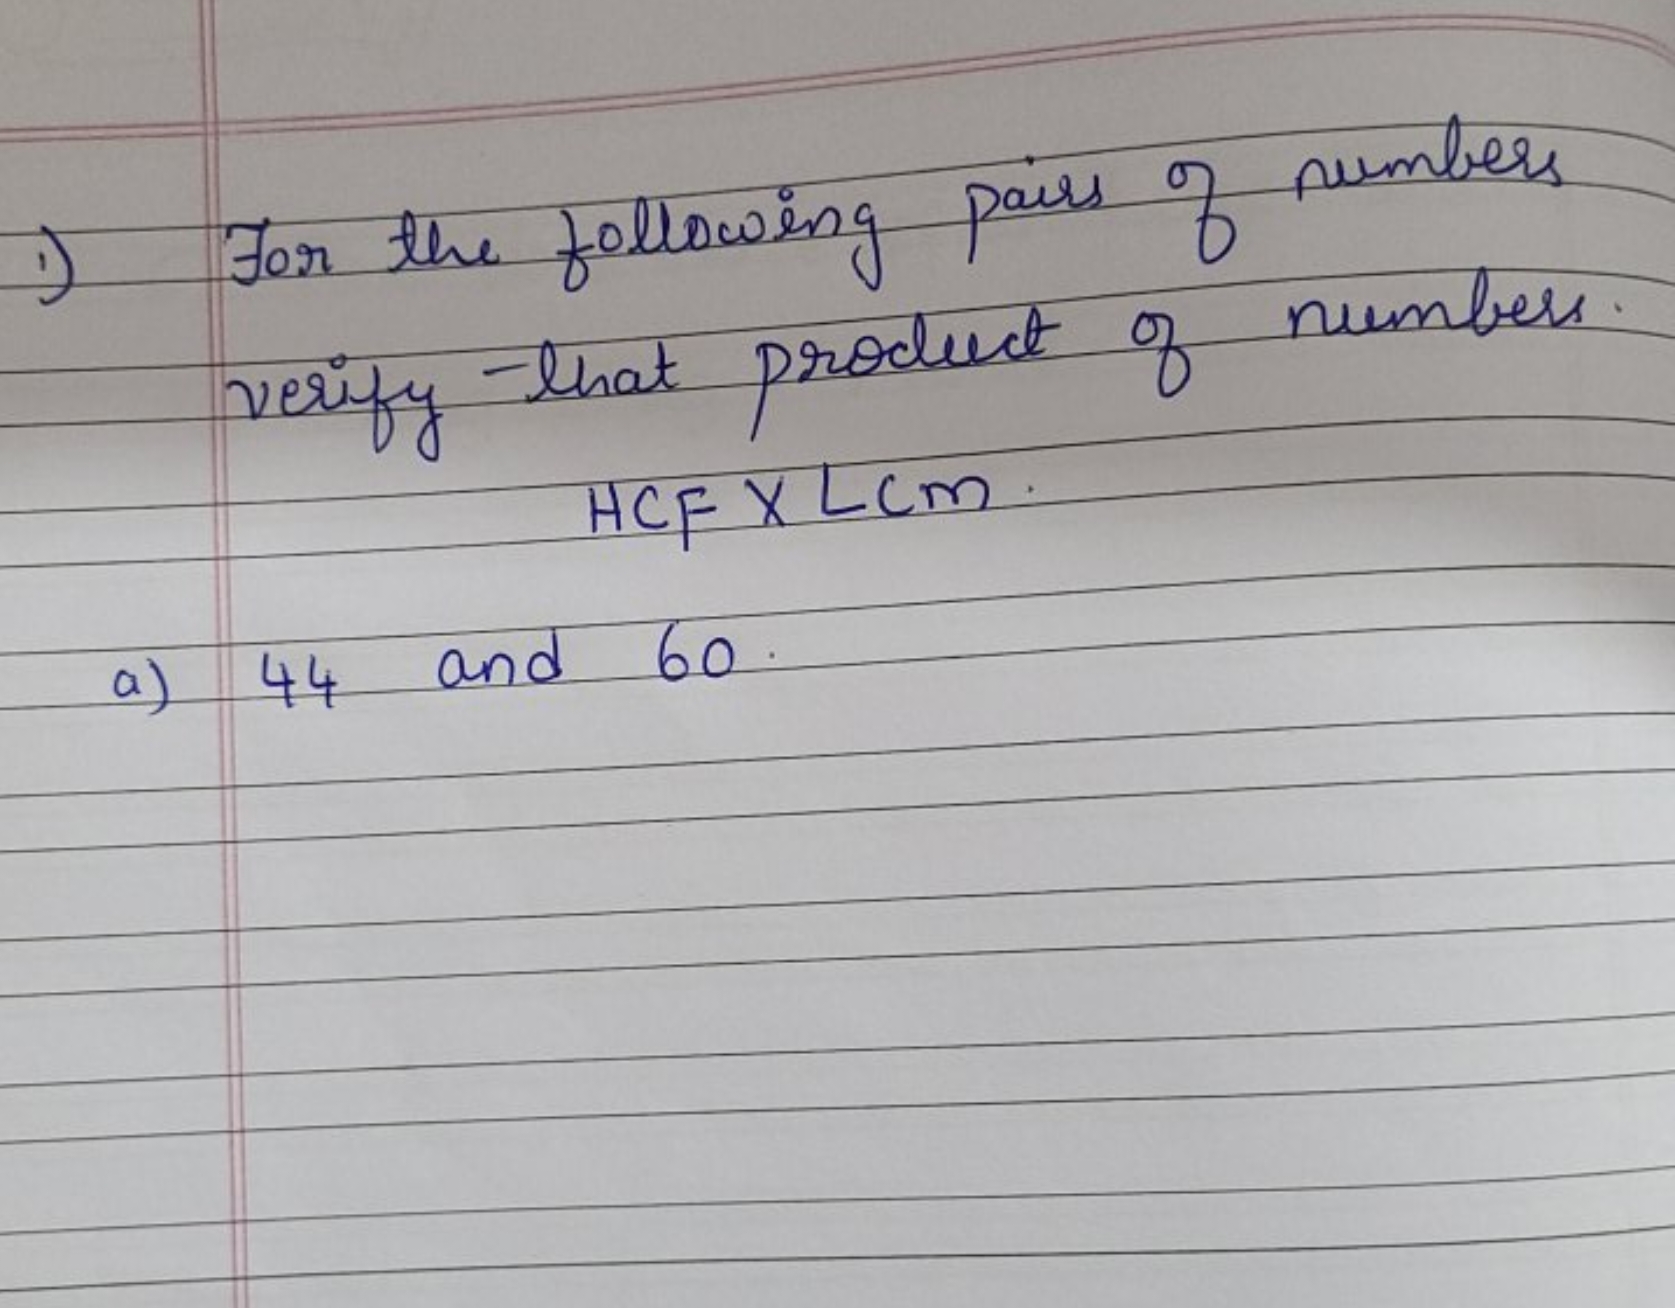 1) For the following pairs of numbers
verify that product of numbers.
HCF X LCM.
a) 44 and 60.